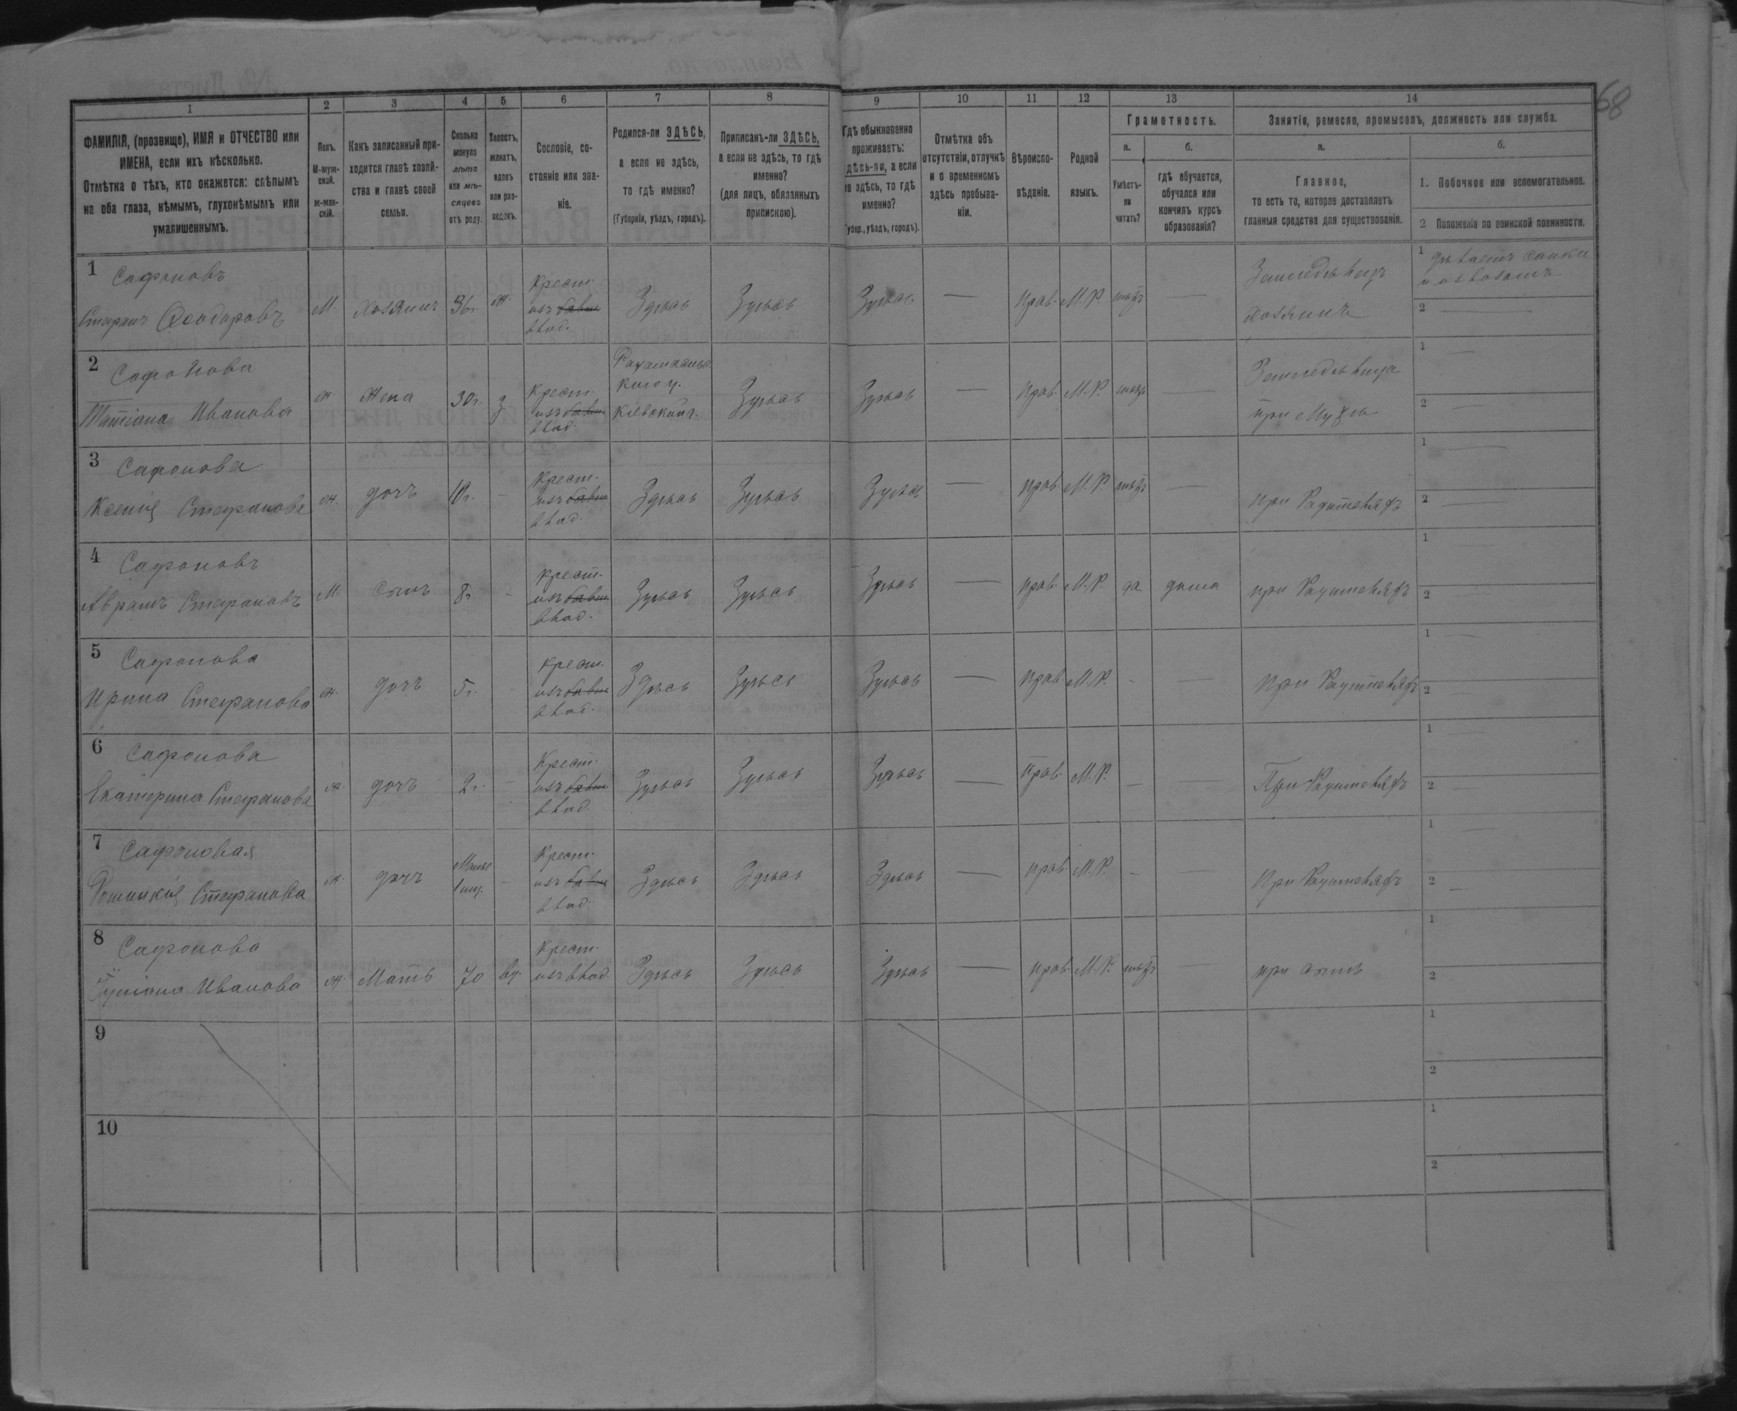 68
1 2 3 4 5 6 7 8 9 10 11 12 13 14
ФАМИЛІЯ, (прозвище), ИМЯ и ОТЧЕСТВО или
ИМЕНА, если ихъ нѣсколько.
Отмѣтка о тѣхъ, кто окажется: слѣпымъ
на оба глаза, нѣмымъ, глухонѣмымъ или
умалишеннымъ.
Полъ.
М-муж-
ской.
ж-жен-
скій.
Какъ записанный при-
ходится главѣ хозяй-
ства и главѣ своей
семьи.
Сколько
минуло
лѣтъ
или мѣ-
сяцевъ
отъ роду.
Холостъ,
женатъ,
вдовъ
или раз-
веденъ.
Сословіе, со-
стояніе или зва-
ніе.
Родился-ли ЗДѢСЬ,
а если не здѣсь,
то гдѣ именно?
(Губернія, уѣздъ, городъ).
Приписанъ-ли ЗДѢСЬ,
а если не здѣсь, то гдѣ
именно?
(для лицъ, обязанныхъ
припискою).
Гдѣ обыкновенно
проживаетъ:
здѣсь-ли, а если
не здѣсь, то гдѣ
именно?
(Губер., уѣздъ, городъ).
Отмѣтка объ
отсутствіи, отлучкѣ
и о временномъ
здѣсь пребыва-
ніи.
Вѣроиспо-
вѣданіе.
Родной
языкъ.
Грамотность.
а.
Умѣетъ-
ли
читать?
б.
гдѣ обучается,
обучался или
кончилъ курсъ
образованія?
Занятіе, ремесло, промыселъ, должность или служба.
а.
Главное,
то есть то, которое доставляетъ
главныя средства для существованія.
б.
1. Побочное или вспомогательное.
2 Положеніе по воинской повинности.
1
Сафоновъ
Стефанъ Феодоровъ
М. хозяинъ 36г. ж.
Крест.
изъ
влад.
Здѣсь Здѣсь Здѣсь — Прав. М.Р. нѣтъ —
Земледѣлецъ
хозяинъ
1
2 —
2
Сафонова
Татіана Иванова
ж Жена 30г. з
Крест.
изъ
влад.
Кіевской г.
Здѣсь Здѣсь — Прав. М.Р. нѣтъ —
Земледѣлица
при Мужѣ
1 —
2 —
3
Сафонова
Ксенія Стефанова
ж. дочь 10г. -
Крест.
изъ
влад.
Здѣсь Здѣсь Здѣсь — Прав. М.Р. нѣтъ —
при Родителяхъ
1 —
2 —
4
Сафоновъ
Аврамъ Стефановъ
М. сынъ 8г. -
Крест.
изъ
влад.
Здѣсь Здѣсь Здѣсь — Прав. М.Р. да дома
при Родителяхъ
1 —
2 —
5
Сафонова
Ирина Стефанова
ж. дочь 5г. -
Крест.
изъ
влад.
Здѣсь Здѣсь Здѣсь — Прав. М.Р. - —
При Родителяхъ
1 —
2 —
6
Сафонова
Екатерина Стефанова
ж. дочь 2г. —
Крест.
изъ
влад
Здѣсь Здѣсь Здѣсь — Прав. М.Р. - —
При Родителяхъ
1 —
2 —
7
Сафоновая
Стефанова
ж. дочь —
Крест.
изъ
влад
Здѣсь Здѣсь Здѣсь — Прав. М.Р. - —
При Родителяхъ
1 —
2 —
8
Сафонова
Иванова
ж Мать 70 вд.
Крест.
изъ влад
Здѣсь Здѣсь Здѣсь — Прав. М.Р. нѣтъ —
при сынѣ
1
2
9
1
2
10
1
2